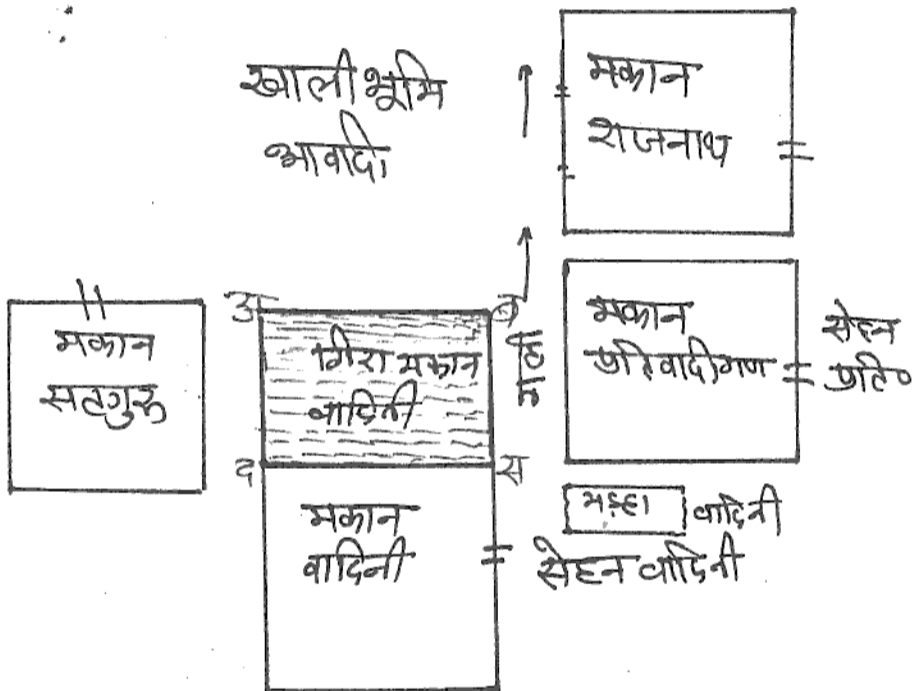 खाली भूमि
आवादी
मकान
राजनाथ
मकान
सतगुरु
अ
ब
गिरा मकान
वादिनी
द
स
मकान
प्रतिवादीगण
सेहन
प्रति०
मकान
वादिनी
वादिनी
सेहन वादिनी